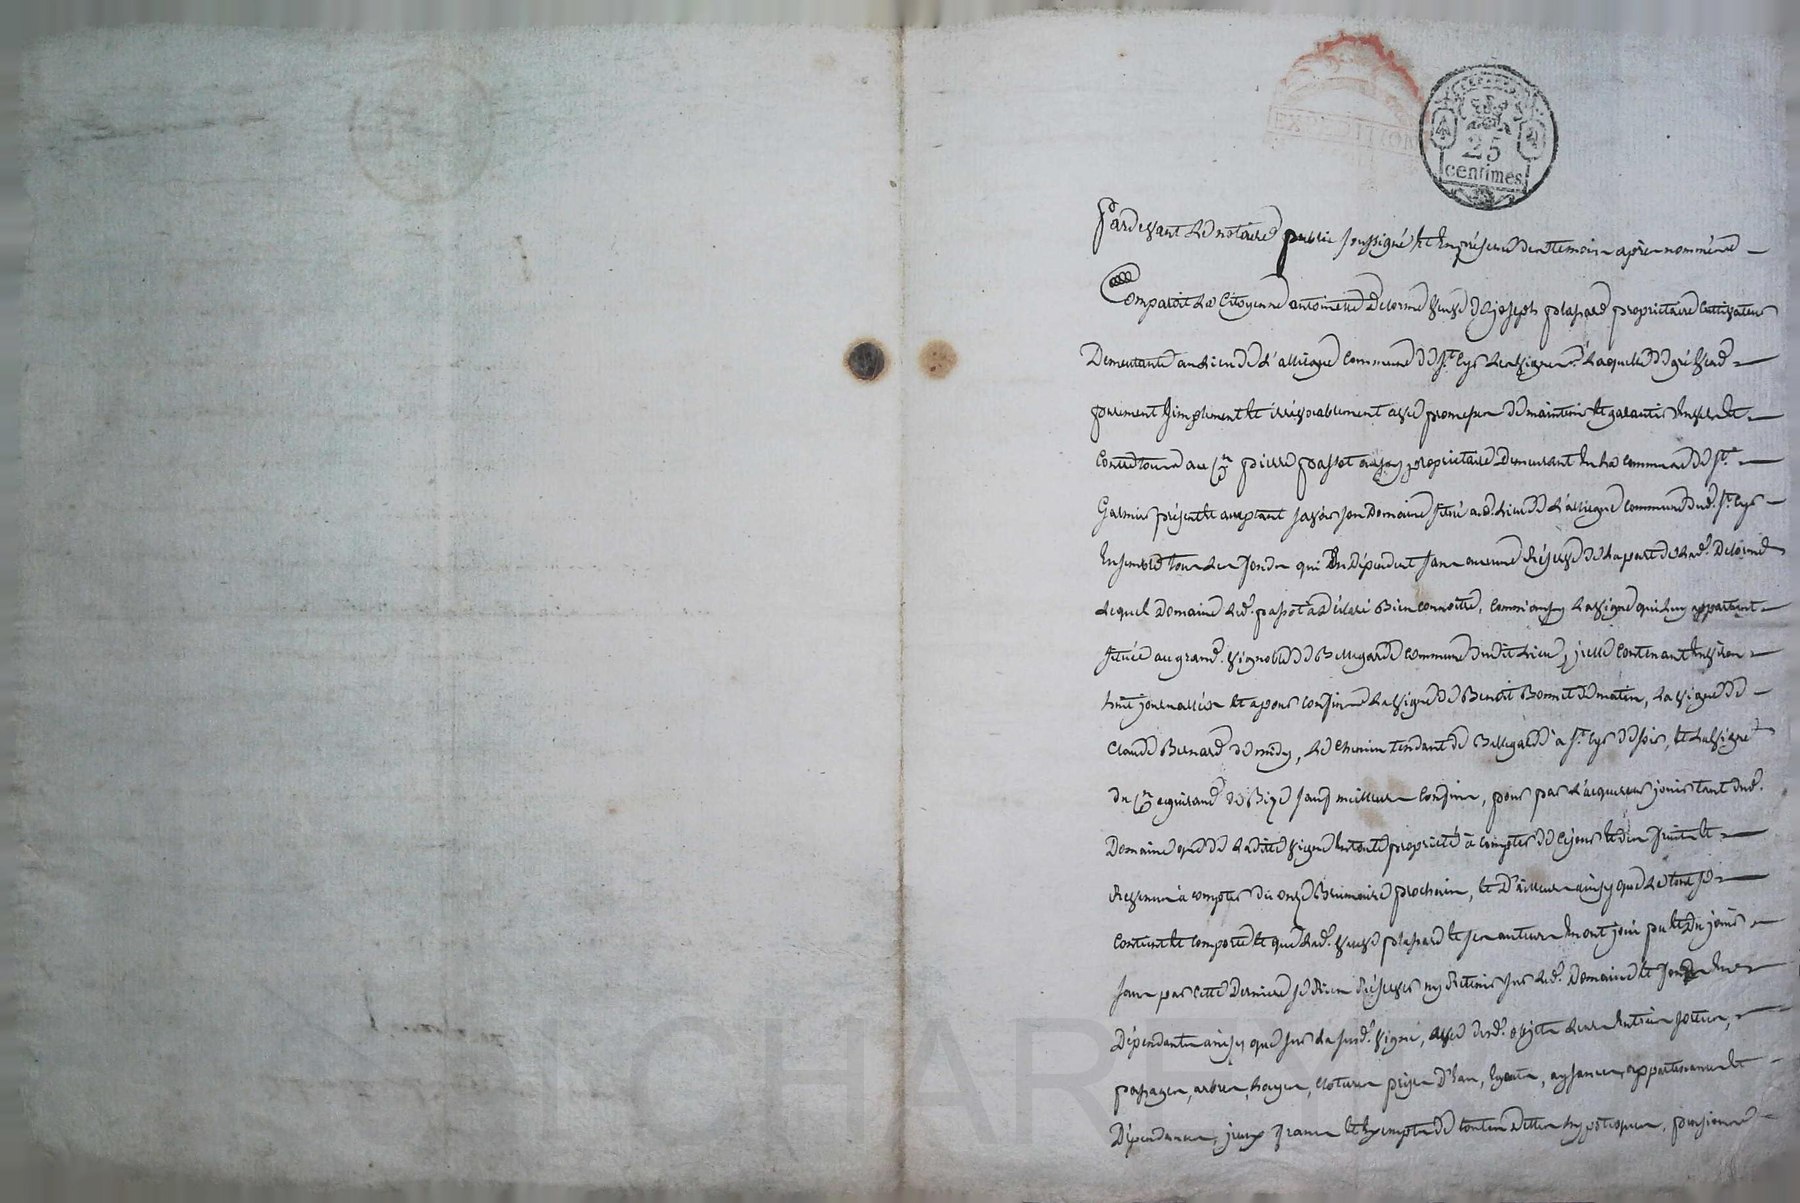 25
centimes
Pardevant Le notaire public soussigné et En présence des temoins après nommés
Comparoit La Citoyenne antoinette Delorme veuve de joseph plassard propriétaire Cultivateur
Demeurante au Lieu de L'alliegue Commune de St. Cyr Les vignes. Laquelle de gré vend
purement simplement et irrévocablement avec promesse de maintenir et garantir Envers et
Contre tous au Cn. pierre passot aussy propriétaire Demeurant En La commune de St.
Galmier présent et acceptant savoir son Domaine situé aud. Lieu de L'alliegue Commune dud. St. Cyr
Ensemble tous Les fonds qui En Dépendent sans aucune Réserve de La part de Lad. Delorme
Lequel Domaine Led. passot a déclaré Bien connoitre, Comme aussy La vigne qui Luy appartient
située au grand vignoble de Bellegarde Commune dudit Lieu, jcelle Contenant Environ
huit journalées et a pour Confins La vigne de Benoit Bonnet de matin, La vigne de
Claude Bernard de midy, Le Chemin tendant de Bellegarde à St. Cyr de soir, et La vigne
du Cn. de Bize sauf meilleurs Confins, pour par L'acquereur jouir tant dud.
Domaine que de Ladite vigne En toute propriété à Compter de Ce jour et des fruits et
Revenus à compter du onze Brumaire prochain, et D'ailleurs ainsy que Le tout se
Contient et Comporte et que Lad. veuve plassard et ses auteurs En ont joui pu et Du jouir
sans par Cette Derniere se Rien Réserver ny Retenir sur Led. Domaine et fonds En
Dépendants ainsy que sur La susd. vigne, avec desd. objets Leurs Entrées sorties,
passages, arbres, hayes, Clotures prises D'Eau, Egouts, aysances, appartenances et
Dépendances, jceux francs et Exempts de toutes dettes hypotheques, pensions